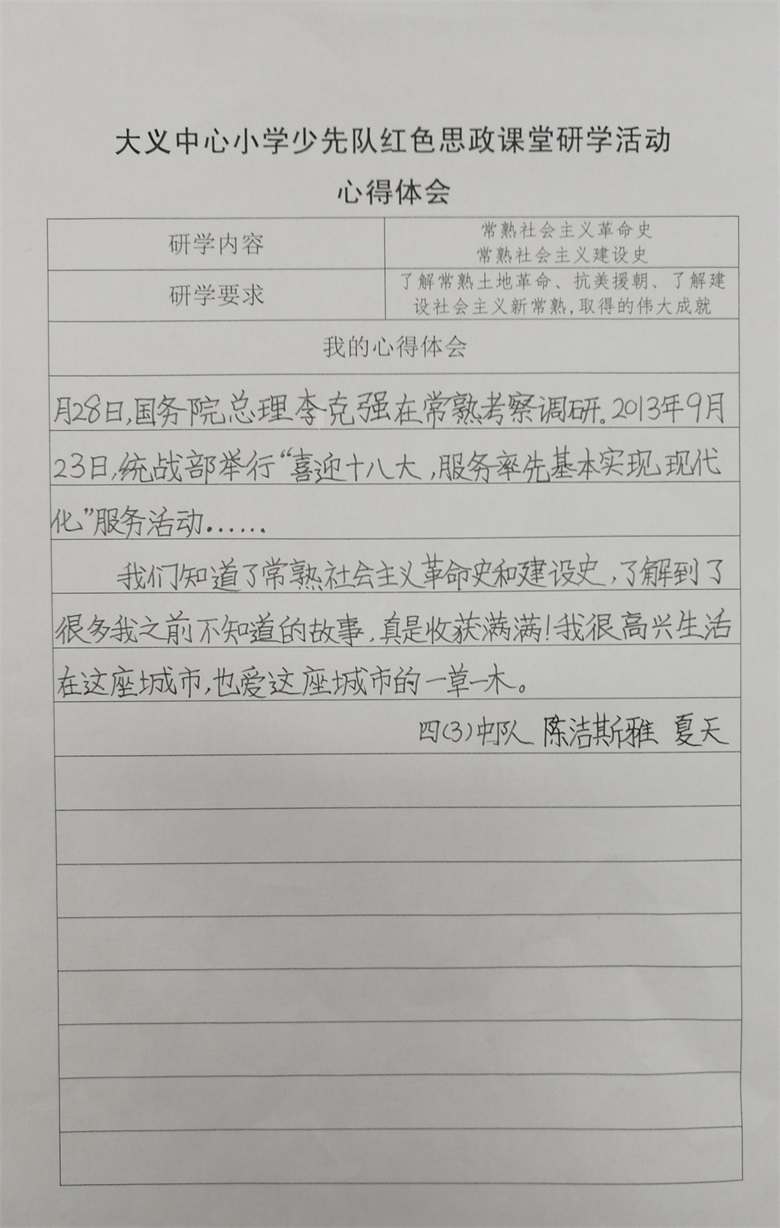 大义中心小学少先队红色思政课堂研学活动
心得体会
研学内容
常熟社会主义革命史
常熟社会主义建设史
研学要求
了解常熟土地革命、抗美援朝、了解建
设社会主义新常熟,取得的伟大成就
我的心得体会
月28日,国务院总理李克强在常熟考察调研。2013年9月
23日,统战部举行“喜迎十八大,服务率先基本实现现代
化”服务活动……
我们知道了常熟社会主义革命史和建设史,了解到了
很多我之前不知道的故事,真是收获满满!我很高兴生活
在这座城市,也爱这座城市的一草一木。
四(3)中队 陈洁斯雅 夏天